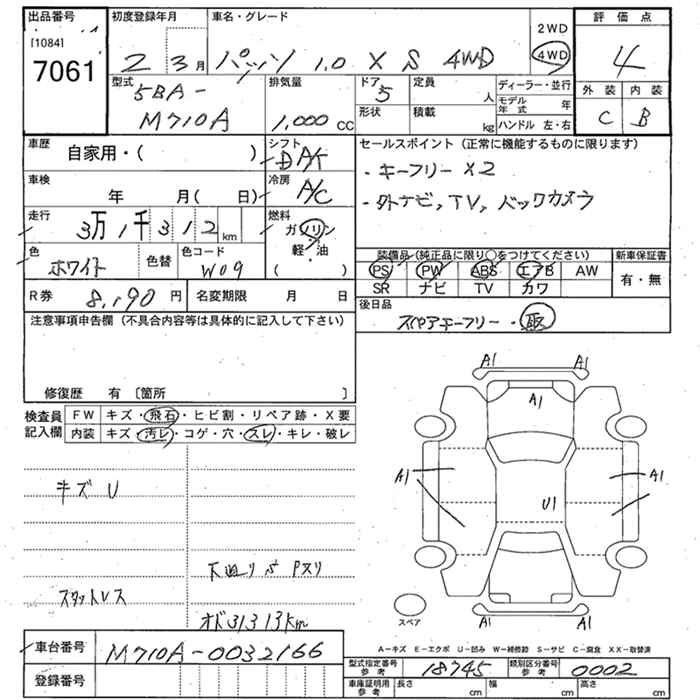 出品番号 初度登録年月 車名・グレード 評価点
[1084]
7061
2 3月 パッソ 1.0 X S 4WD
2WD
4WD
4
型式 排気量 ドア 定員 ディーラー・並行 外装 内装
5BA-
M710A
1,000 CC
5
人
モデル年式 年
形状 積載
kg
ハンドル 左・右
C B
車歴 自家用・( )
シフト
セールスポイント (正常に機能するものに限ります)
・キーフリー X2
・外ナビ, TV, バックカメラ
車検 年 月( 日)
冷房 A/C
走行
3万1千312km
燃料
ガソリン
軽・油
( )
色 ホワイト 色替 色コード W09
装備品 (純正品に限り○をつけてください) 新車保証書
PS PW ABS エアB AW
SR ナビ TV カワ
有・無
R券 8,190円 名変期限 月 日
後日品
スペアキーフリー・取
注意事項申告欄 (不具合内容等は具体的に記入して下さい)
修復歴 有 〔箇所 〕
検査員
記入欄
FW キズ・飛石・ヒビ割・リペア跡・X要
内装 キズ・汚レ・コゲ・穴・スレ・キレ・破レ
A1 A1
A1
A1 A1
U1
A1 A1
スペア
キズ U
下廻り サ Pスリ
スタットレス
オド31313km
A-キズ E-エクボ U-凹み W-補修跡 S-サビ C-腐食 XX-取替済
車台番号 M710A-0032166
登録番号
型式指定番号 参考 18745 類別区分番号 参考 0002
車庫証明用 参考 長さ cm 幅 cm 高さ cm